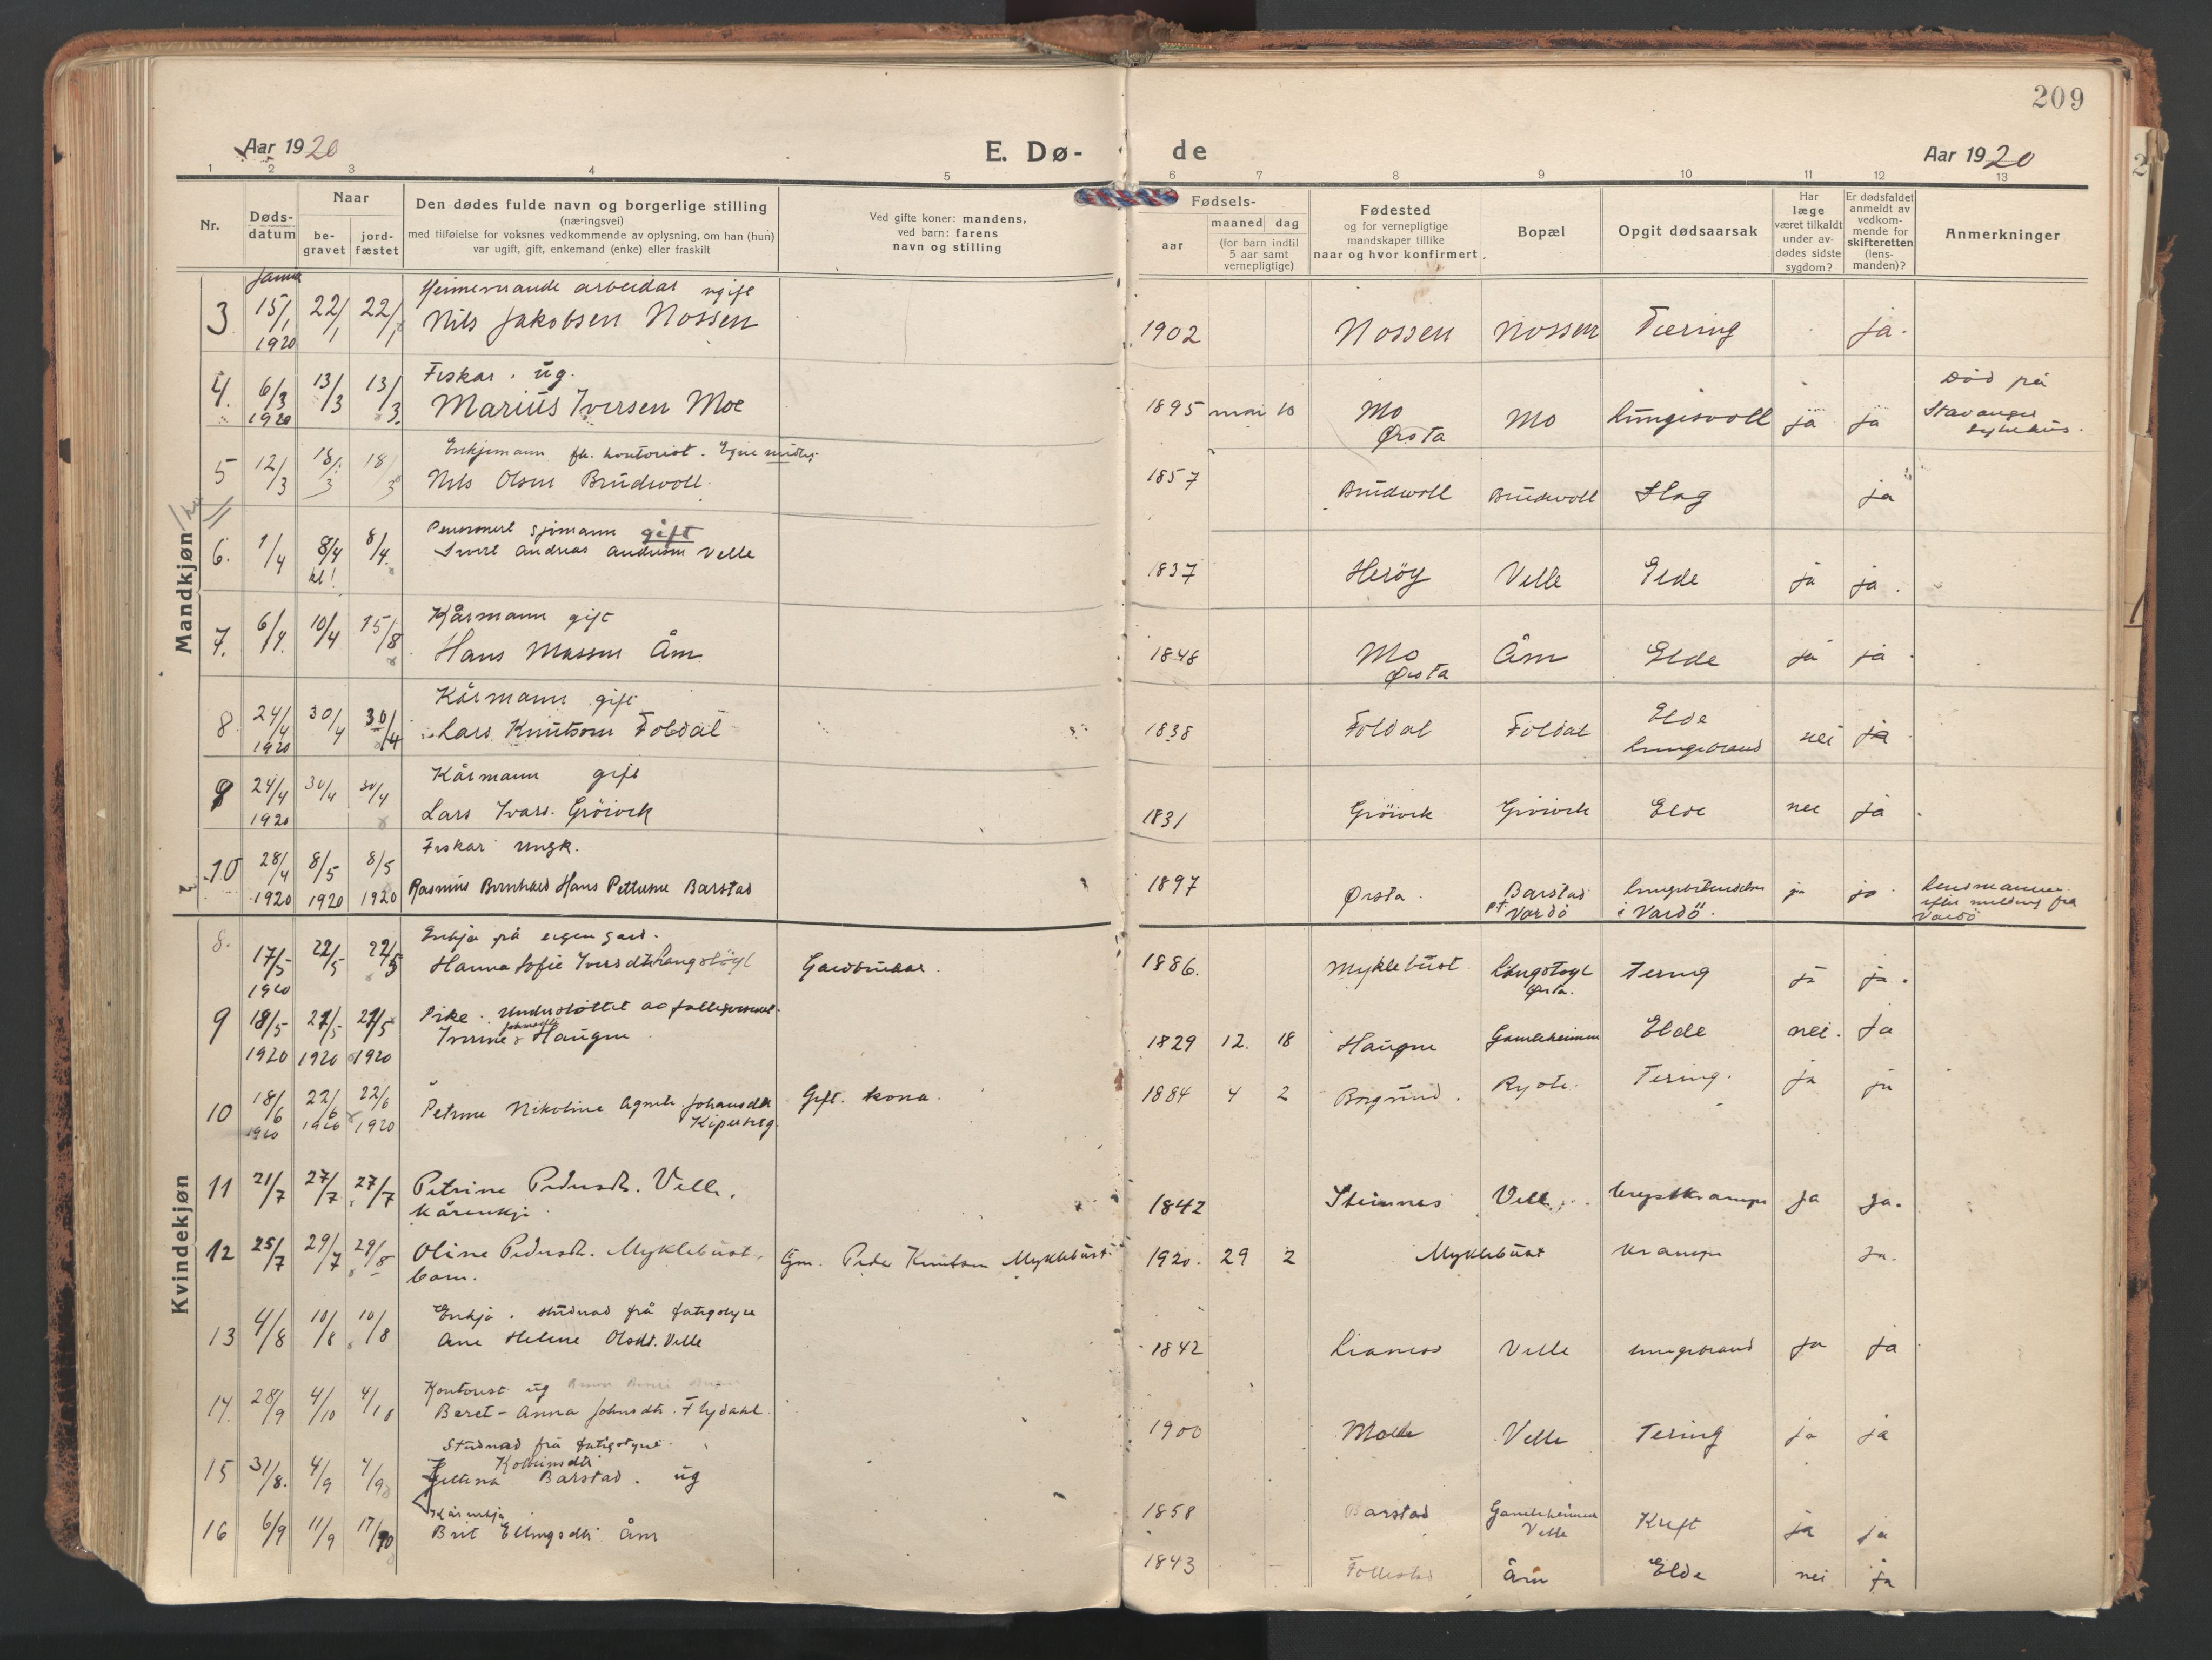 209
Aar 1920
E. Dø-
de
Aar 1920
1 2 3 4 5 6 7 8 9 10 11 12 13
Nr.
Døds-
datum
Naar
be-
gravet
jord-
fæstet
Den dødes fulde navn og borgerlige stilling
(næringsvei)
med tilføielse for voksnes vedkommende av oplysning, om han (hun)
var ugift, gift, enkemand (enke) eller fraskilt
Ved gifte koner: mandens,
ved barn: farens
navn og stilling
Fødsels-
aar
maaned dag
(for barn indtil
5 aar samt
vernepligtige)
Fødested
og for vernepligtige
mandskaper tillike
naar og hvor konfirmert
Bopæl
Opgit dødsaarsak
Har
læge
været tilkaldt
under av-
dødes sidste
sygdom?
Er dødsfaldet
anmeldt av
vedkom-
mende for
skifteretten
(lens-
manden)?
Anmerkninger
Mandkjøn
Heimeverande arbeidar ugift
3 15/1 1920 22/1 22/1 Nils Jakobsen Nossen 1902 Nossen Nossen Tæring ja.
Fiskar. ug.
4. 6/3 1920 13/3 13/3. Marius Iversen Moe 1895 mai 10 Mo Ørsta Mo Lungesvoll ja ja Død på Stavanger sykehus.
Enkjemann fh. kontorist. Egne midler
5 12/3 18/3 18/3 Nils Olsen Brudevoll 1857 Brudevoll Brudevoll Slag ja
Pensionert Sjømann gift
6. 1/4 8/4 kl! 8/4. Sivert Andreas Andersen Velle 1837 Herøy Velle Elde ja ja.
Kårmann gift
7. 6/4. 10/4 15/8 Hans Massen Åm 1848 Mo Ørsta Åm Elde ja ja
Kårmann gift
8 24/4 1920 30/4 30/4 Lars Knutson Foldal 1838 Foldal Foldal Elde Lungebrand nei ja
Kårmann gift
9 24/4 1920 30/4 30/4 Lars Ivars. Grøivik 1831 Grøivik Grøivik Elde nei ja
Fiskar ungk.
10 28/4 1920 8/5 1920 8/5 1920 Rasmus Bernhard Hans Pettersen Barstad 1897 Ørsta. Barstad pt Vardö i Vardö. ja ja Lensmannen efter melding fra Vardö
Kvindekjøn
Enkja på eigen gard.
8. 17/5 1920 22/5 22/5 Hanna Sofie Iversdtr Langstöyl Gardbrukar. 1886. Myklebust Langstöyl Ørsta. Tering ja ja.
Pike. Understöttet av
9 18/5 1920 21/5 1920 21/5 1920 Haugen 1829 12. 18 Haugen Gamleheimen Elde nei. Ja
10 18/6 1920 22/6 1920 22/6 1920 Petrine Nikoline Agnete Johansdtr Gift. kona. 1884 4 2 Borgund. Ryste. Tering. ja ja
11 21/7 27/7 27/7 Petrine Pedersdtr. Velle.
Kårenkje 1842 Steinnes Velle Brystkrampe ja ja.
12 25/7 29/7 29/8 Oline Pedersdtr. Myklebust, Gm. Peder Knutsen Myklebust 1920. 29 2 Myklebust Krampe Ja.
barn.
Enkja. studnad frå fatigstyre
13 4/8 10/8 10/8 Ane Helene Olsdt. Velle 1842 Lianess Velle Lungebrand ja ja
Kontorist ug
14. 28/9 4/10 4/10 Beret-Anna Johnsdtr. Flydahl 1900 Molde Velle Tering ja ja
Studnad frå fatigstyre.
15 31/8. 4/9 4/9 Kolbeinsdtr Barstad. ug 1858 Barstad Gamleheimen Velle Kreft ja ja
Kårenkja
16 6/9 11/9 17/10 Brit Ellingsdtr Åm 1843 Follestad Åm Elde nei ja